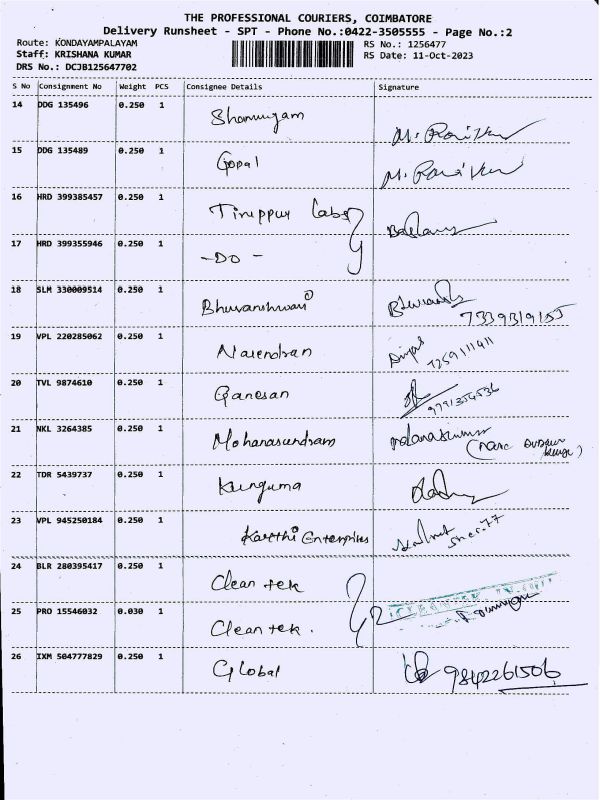 THE PROFESSIONAL COURIERS, COIMBATORE
Delivery Runsheet - SPT - Phone No.:0422-3505555 - Page No.:2
Route: KONDAYAMPALAYAM
Staff: KRISHANA KUMAR
DRS No.: DCJB125647702
RS No.: 1256477
RS Date: 11-Oct-2023
S No Consignment No Weight PCS Consignee Details Signature
14 DDG 135496 0.250 1 Shanmugam
15 DDG 135489 0.250 1 Gopal
16 HRD 399385457 0.250 1 Tiruppur Labs
17 HRD 399355946 0.250 1 -DO-
18 SLM 330009514 0.250 1 Bhuvaneshwari 7339319155
19 VPL 220285062 0.250 1 Narendran
20 TVL 9874610 0.250 1 Ganesan
21 NKL 3264385 0.250 1 Mohanasundram
22 TDR 5439737 0.250 1 Kunguma
23 VPL 945250184 0.250 1 Karthi Enterprises
24 BLR 280395417 0.250 1 Clean tek
25 PRO 15546032 0.030 1 Clean tek.
26 IXM 504777829 0.250 1 Global 9842261506